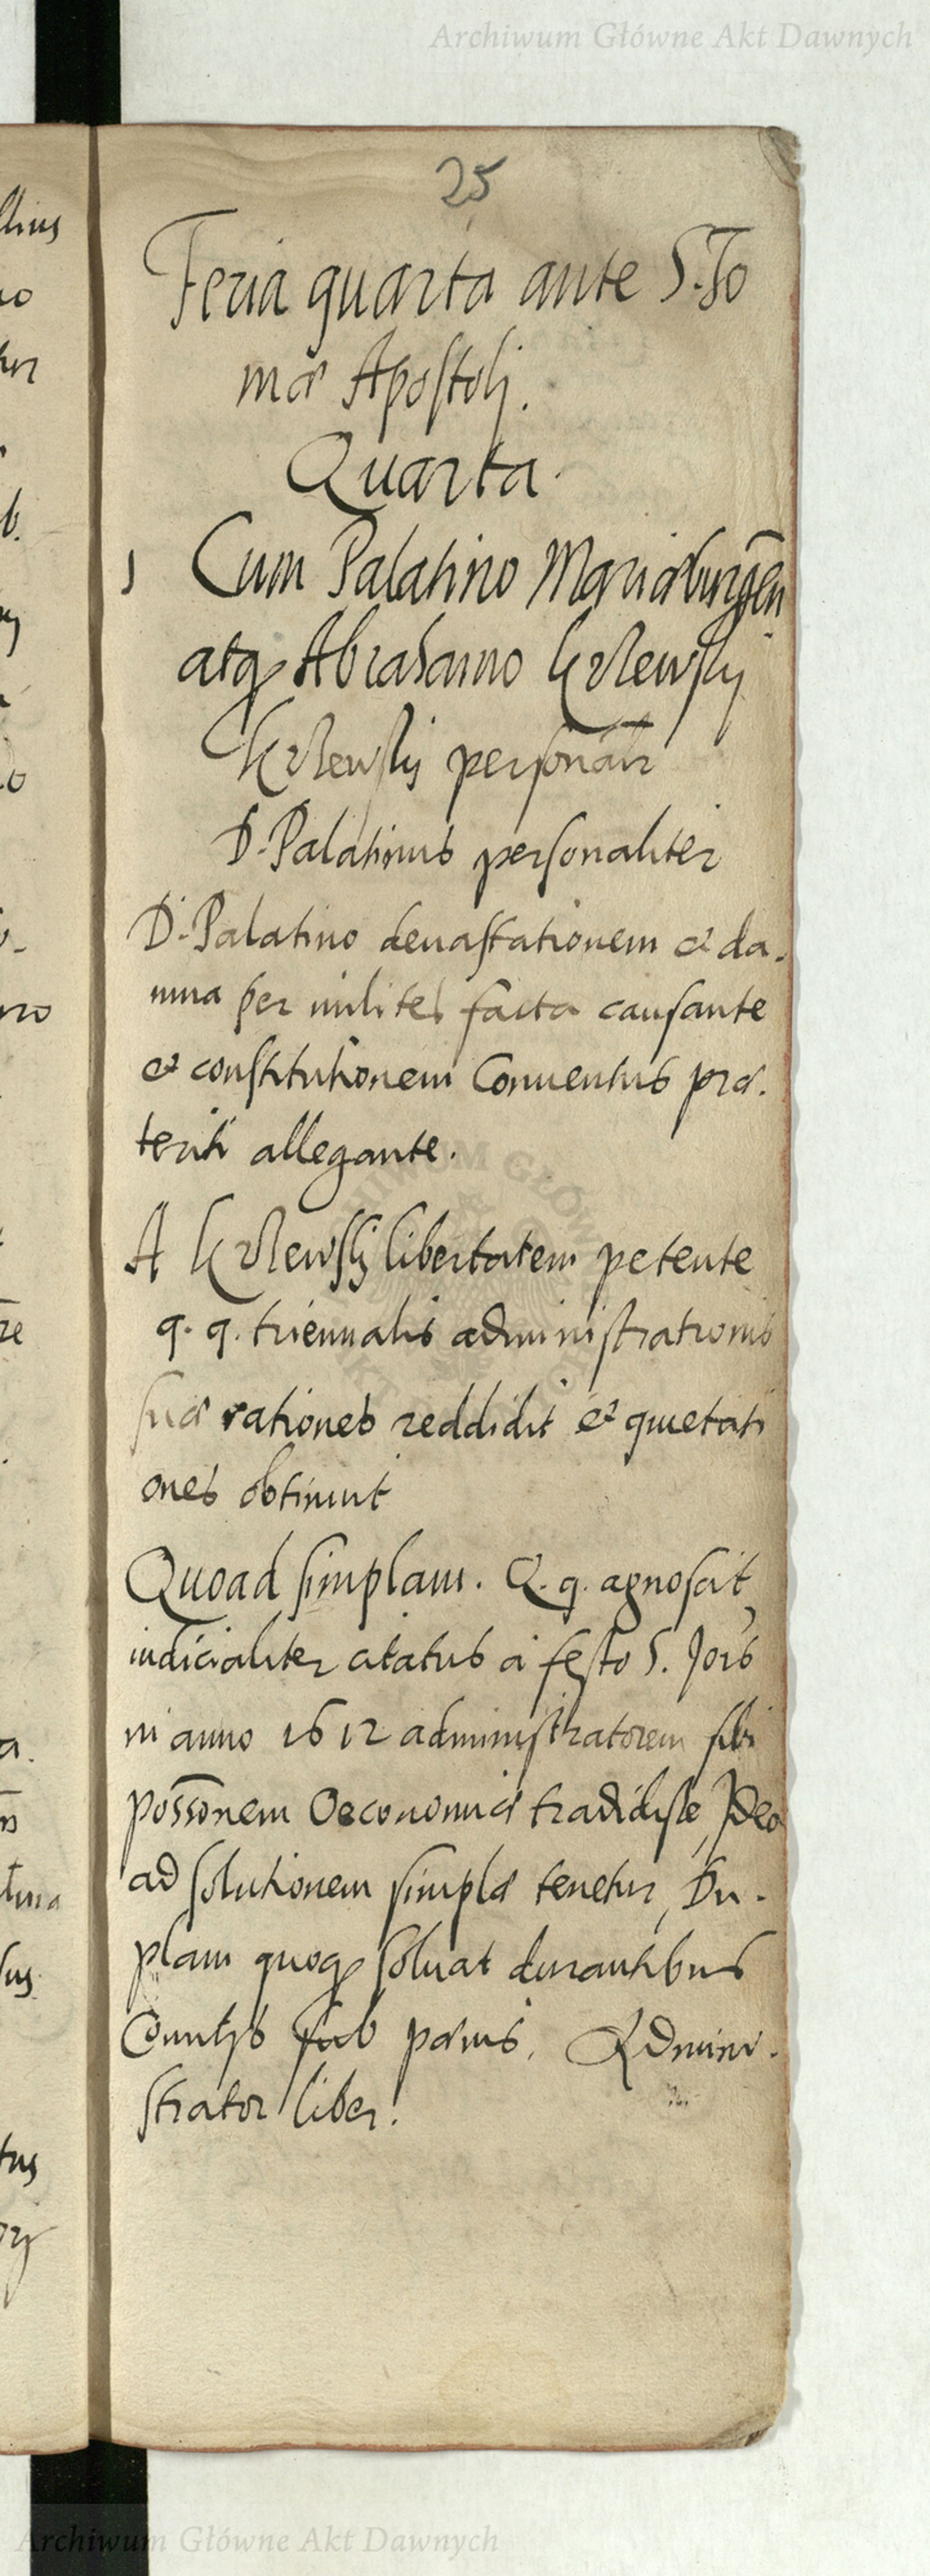 Archiwum Główne Akt Dawnych
25
Feria quarta ante S. To
mæ Apostoli.
Quarta.
1 Cum Palatino Mariæburgen
atq Abrahamo
personalr
D. Palatinus personaliter
D. Palatino deuastationem et da-
mna per milites facta causante
et constitutionem Conuentus præ-
teriti allegante.
A libertatem petente
q. q. triennalis administrationis
suæ rationes reddidit et quietati
ones obtinuit
Quoad simplam. Q. q. agnoscit,
iudicialiter citatus à festo S.
ni anno 1612 administratorem sibi
possonem Oeconomiæ tradidisse, Ideo
ad solutionem simplæ tenetur, Du-
plam quoq soluat durantibus
sub pænis. Admini-
strator liber.
Archiwum Główne Akt Dawnych